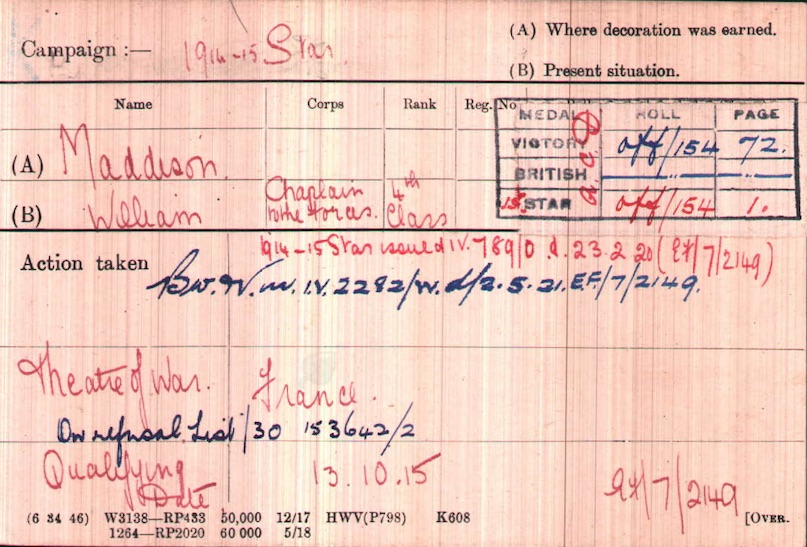 (A) Where decoration was earned.
Campaign :— 1914-15 Star.
(B) Present situation.
Name Corps Rank Reg. No
MEDAL ROLL PAGE
VICTORY off/154 72.
BRITISH
15 STAR off/154 1.
(A) Maddison.
(B) William Chaplain to the Forces. 4th Class
1914-15 Star issued IV. 789/0 d. 23.2.20 (EF/7/2149)
Action taken B.W.V.M. IV. 2282/W. d/2.5.21. E.F./7/2149.
Theatre of War. France.
On refusal List/30 153642/2
Qualifying Date 13.10.15
EF/7/2149
(6 34 46) W3138—RP433 50,000 12/17 HWV(P798) K608
1264—RP2020 60 000 5/18
[OVER.